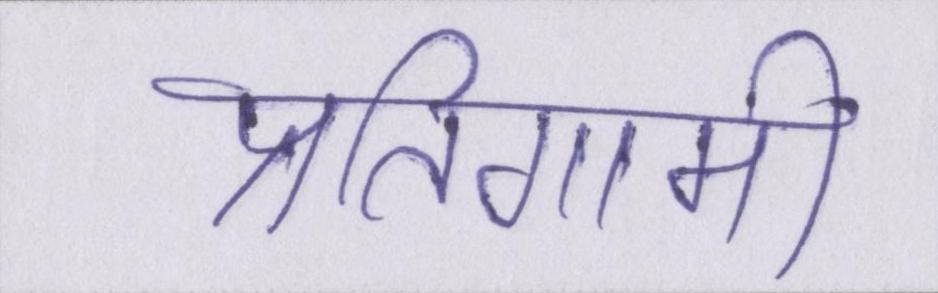 प्रतिगामी